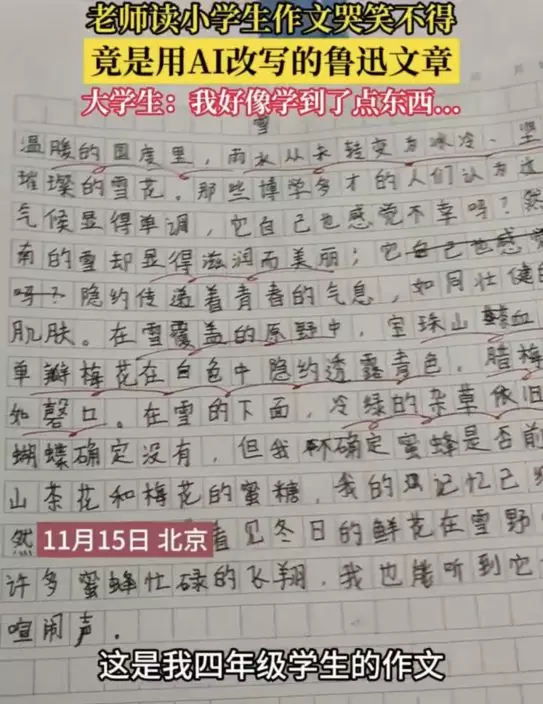 老师读小学生作文哭笑不得
竟是用AI改写的鲁迅文章
大学生：我好像学到了点东西...
雪
温暖的国度里，雨水从未转变为冰冷、坚
璀璨的雪花。那些博学多才的人们认为这
气候显得单调，它自己也感觉不幸吗？
南的雪却显得滋润而美丽；它自己也感觉
吗？隐约传递着青春的气息，如同壮健的
肌肤。在雪覆盖的原野中，宝珠山 血
单瓣梅花在白色中隐约透露青色，腊梅
如磬口。在雪的下面，冷绿的杂草依旧
蝴蝶确定没有，但我 确定蜜蜂是否前
山茶花和梅花的蜜糖，我的 记忆已
然 看见冬日的鲜花在雪野
许多蜜蜂忙碌的飞翔，我也能听到它
喧闹声。
11月15日 北京
这是我四年级学生的作文